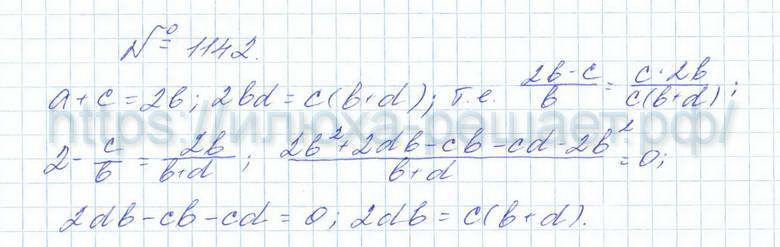 № 1142.
a+c=2b; 2bd=c(b+d); т.е. (2b-c)/b = (c·2b)/(c(b+d));
https://илюха-решает.рф/
2 - c/b = 2b/(b+d); (2b²+2db-cb-cd-2b²)/(b+d) = 0;
2db-cb-cd=0; 2db=c(b+d).